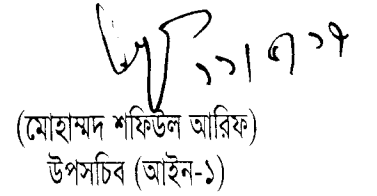 (মোহাম্মদ শফিউল আরিফ)
উপসচিব (আইন-১)